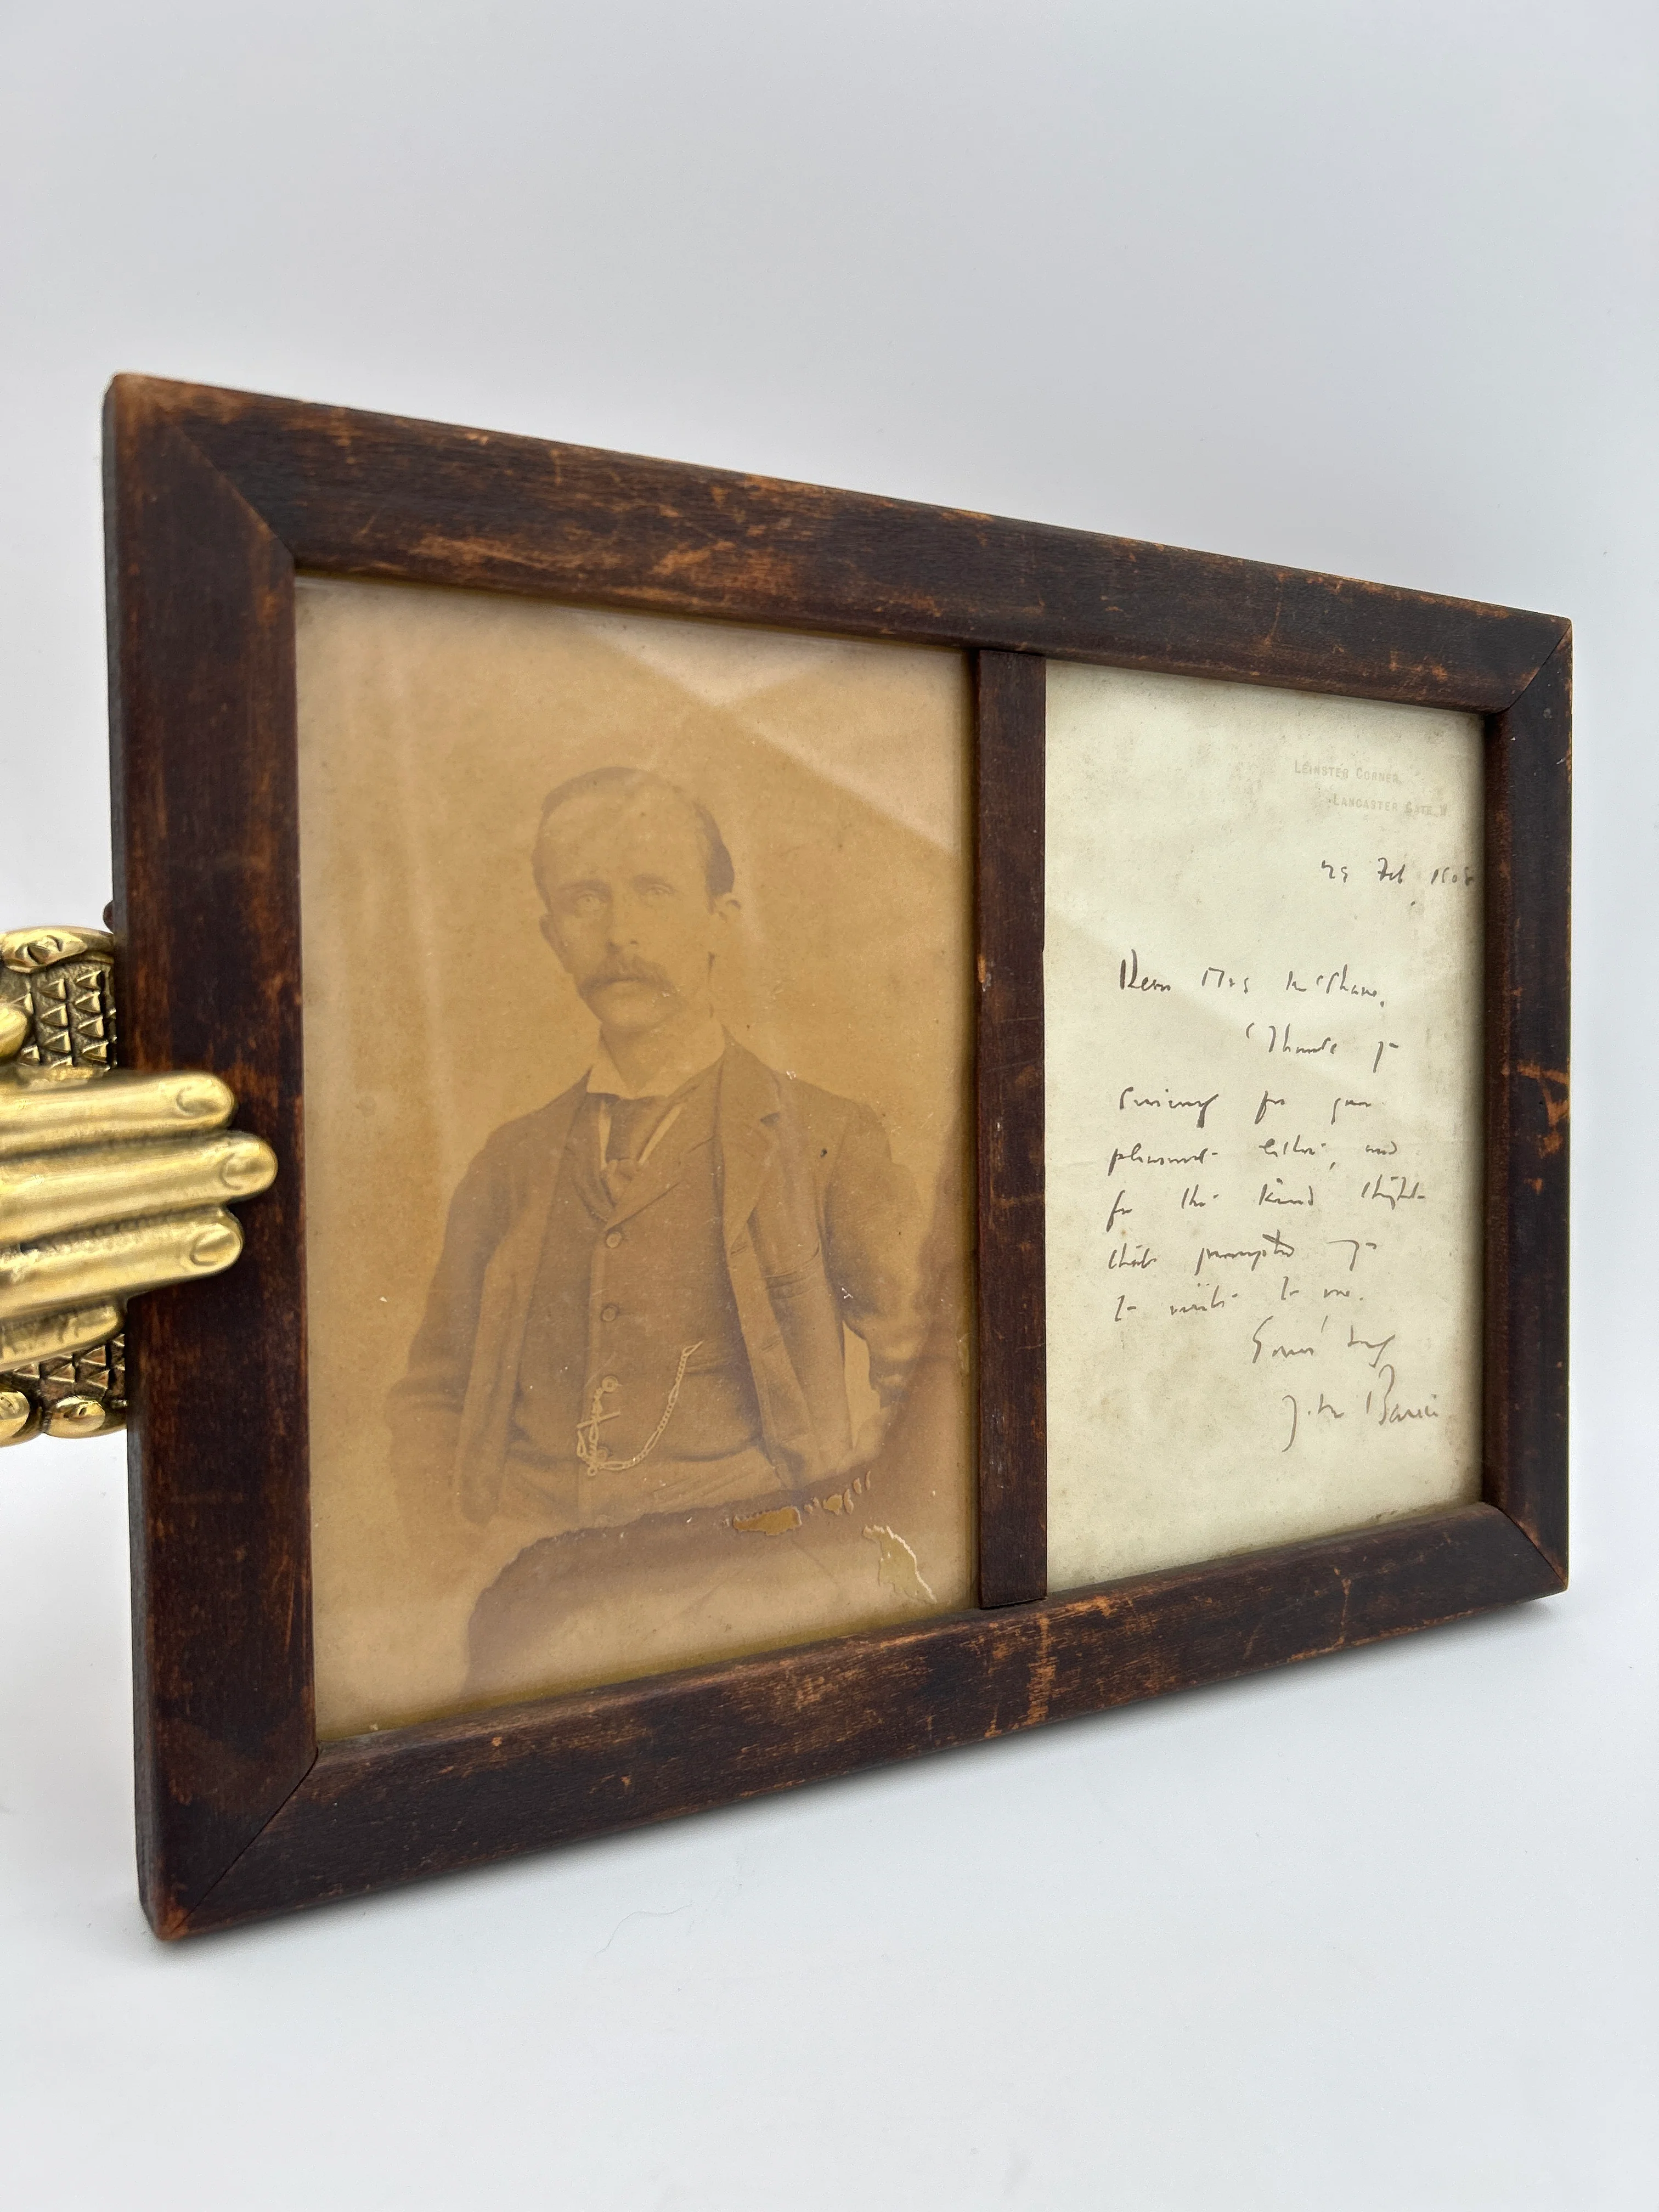 LEINSTER CORNER,
LANCASTER GATE. W
Feb 1908
Dear Mrs
Thank yr
for your
pleasant letter, and
for the kind thought
that prompted yr
to write to me.
Yours truly
J. M. Barrie